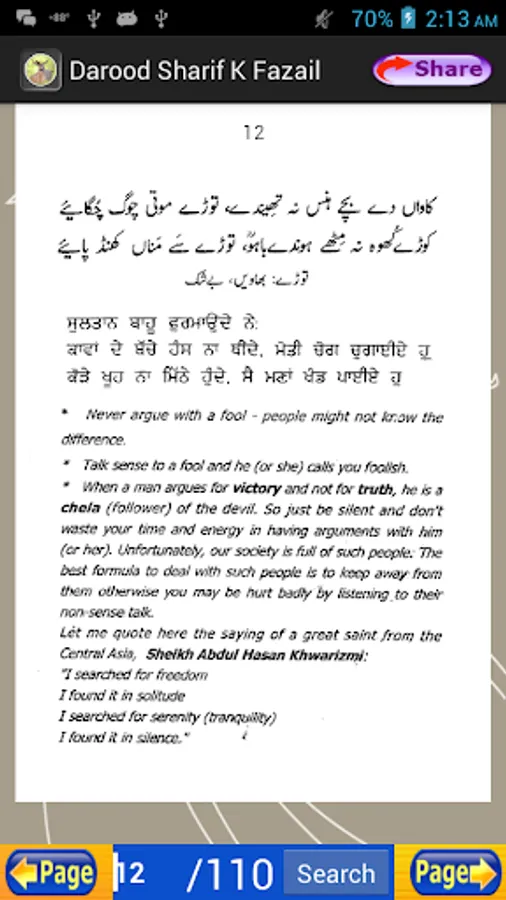 70% 2:13 AM
Darood Sharif K Fazail
Share
12
کاواں دے بچے ہنس نہ تھیندے، توڑے موتی چوگ چُگایئے
کوڑے کُھوہ نہ مِٹھے ہوندے باہوؒ، توڑے سَے مَناں کھنڈ پایئے
توڑے: بھاویں، بے شک
ਸੁਲਤਾਨ ਬਾਹੂ ਫੁਰਮਾਉਂਦੇ ਨੇ:
ਕਾਵਾਂ ਦੇ ਬੱਚੇ ਹੰਸ ਨਾ ਥੀਂਦੇ, ਮੋਤੀ ਚੋਗ ਚੁਗਾਈਏ ਹੂ
ਕੌੜੇ ਖੂਹ ਨਾ ਮਿੱਠੇ ਹੁੰਦੇ, ਸੈ ਮਣਾਂ ਖੰਡ ਪਾਈਏ ਹੂ
* Never argue with a fool - people might not know the
difference.
* Talk sense to a fool and he (or she) calls you foolish.
* When a man argues for victory and not for truth, he is a
chela (follower) of the devil. So just be silent and don't
waste your time and energy in having arguments with him
(or her). Unfortunately, our society is full of such people. The
best formula to deal with such people is to keep away from
them otherwise you may be hurt badly by listening to their
non-sense talk.
Let me quote here the saying of a great saint from the
Central Asia, Sheikh Abdul Hasan Khwarizmi:
"I searched for freedom
I found it in solitude
I searched for serenity (tranquility)
I found it in silence."
Page 12 /110 Search Page